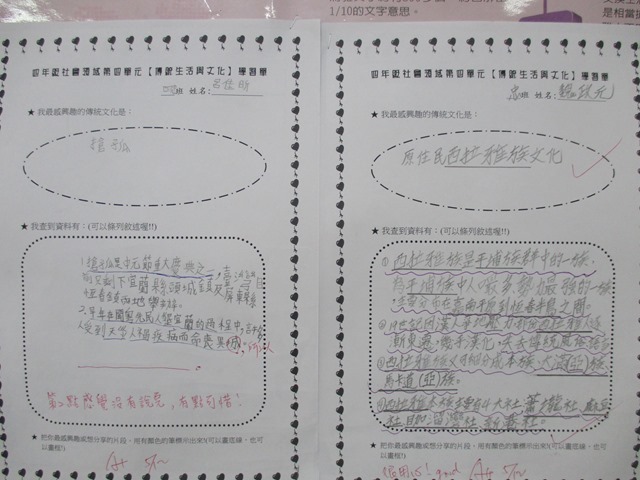 1/10的文字意思。
四年級社會領域第四單元【傳統生活與文化】學習單
班 姓名:
★ 我最感興趣的傳統文化是：
搶孤
★ 我查到資料有：(可以條列敘述喔!!)
1.搶孤是中元節重大慶典之一，臺灣目
前只剩下宜蘭縣頭城鎮及屏東縣
恆春鎮兩地舉辦。
2.早年在開墾宜蘭的過程中，許多
第2點感覺沒有說完，有點可惜!
★ 把你最感興趣或想分享的片段，用有顏色的筆標示出來!(可以畫底線，也可
以畫框!)
A+
四年級社會領域第四單元【傳統生活與文化】學習單
班 姓名:
★ 我最感興趣的傳統文化是：
原住民西拉雅族文化
★ 我查到資料有：(可以條列敘述喔!!)
①西拉雅族是平埔族群中的一族,
為平埔族中人數最多勢力最強的一族
主要分布在嘉南平原到恆春半島之間。
③西拉雅族又可細分成本族、大滿(亞)族、
馬卡道(亞)族。
④西拉雅本族主要有4大社 蕭壠社、麻豆
社、目加溜灣社、新港社。
★ 把你最感興趣或想分享的片段，用有顏色的筆標示出來!(可以畫底線，也可
以畫框!)
good A+